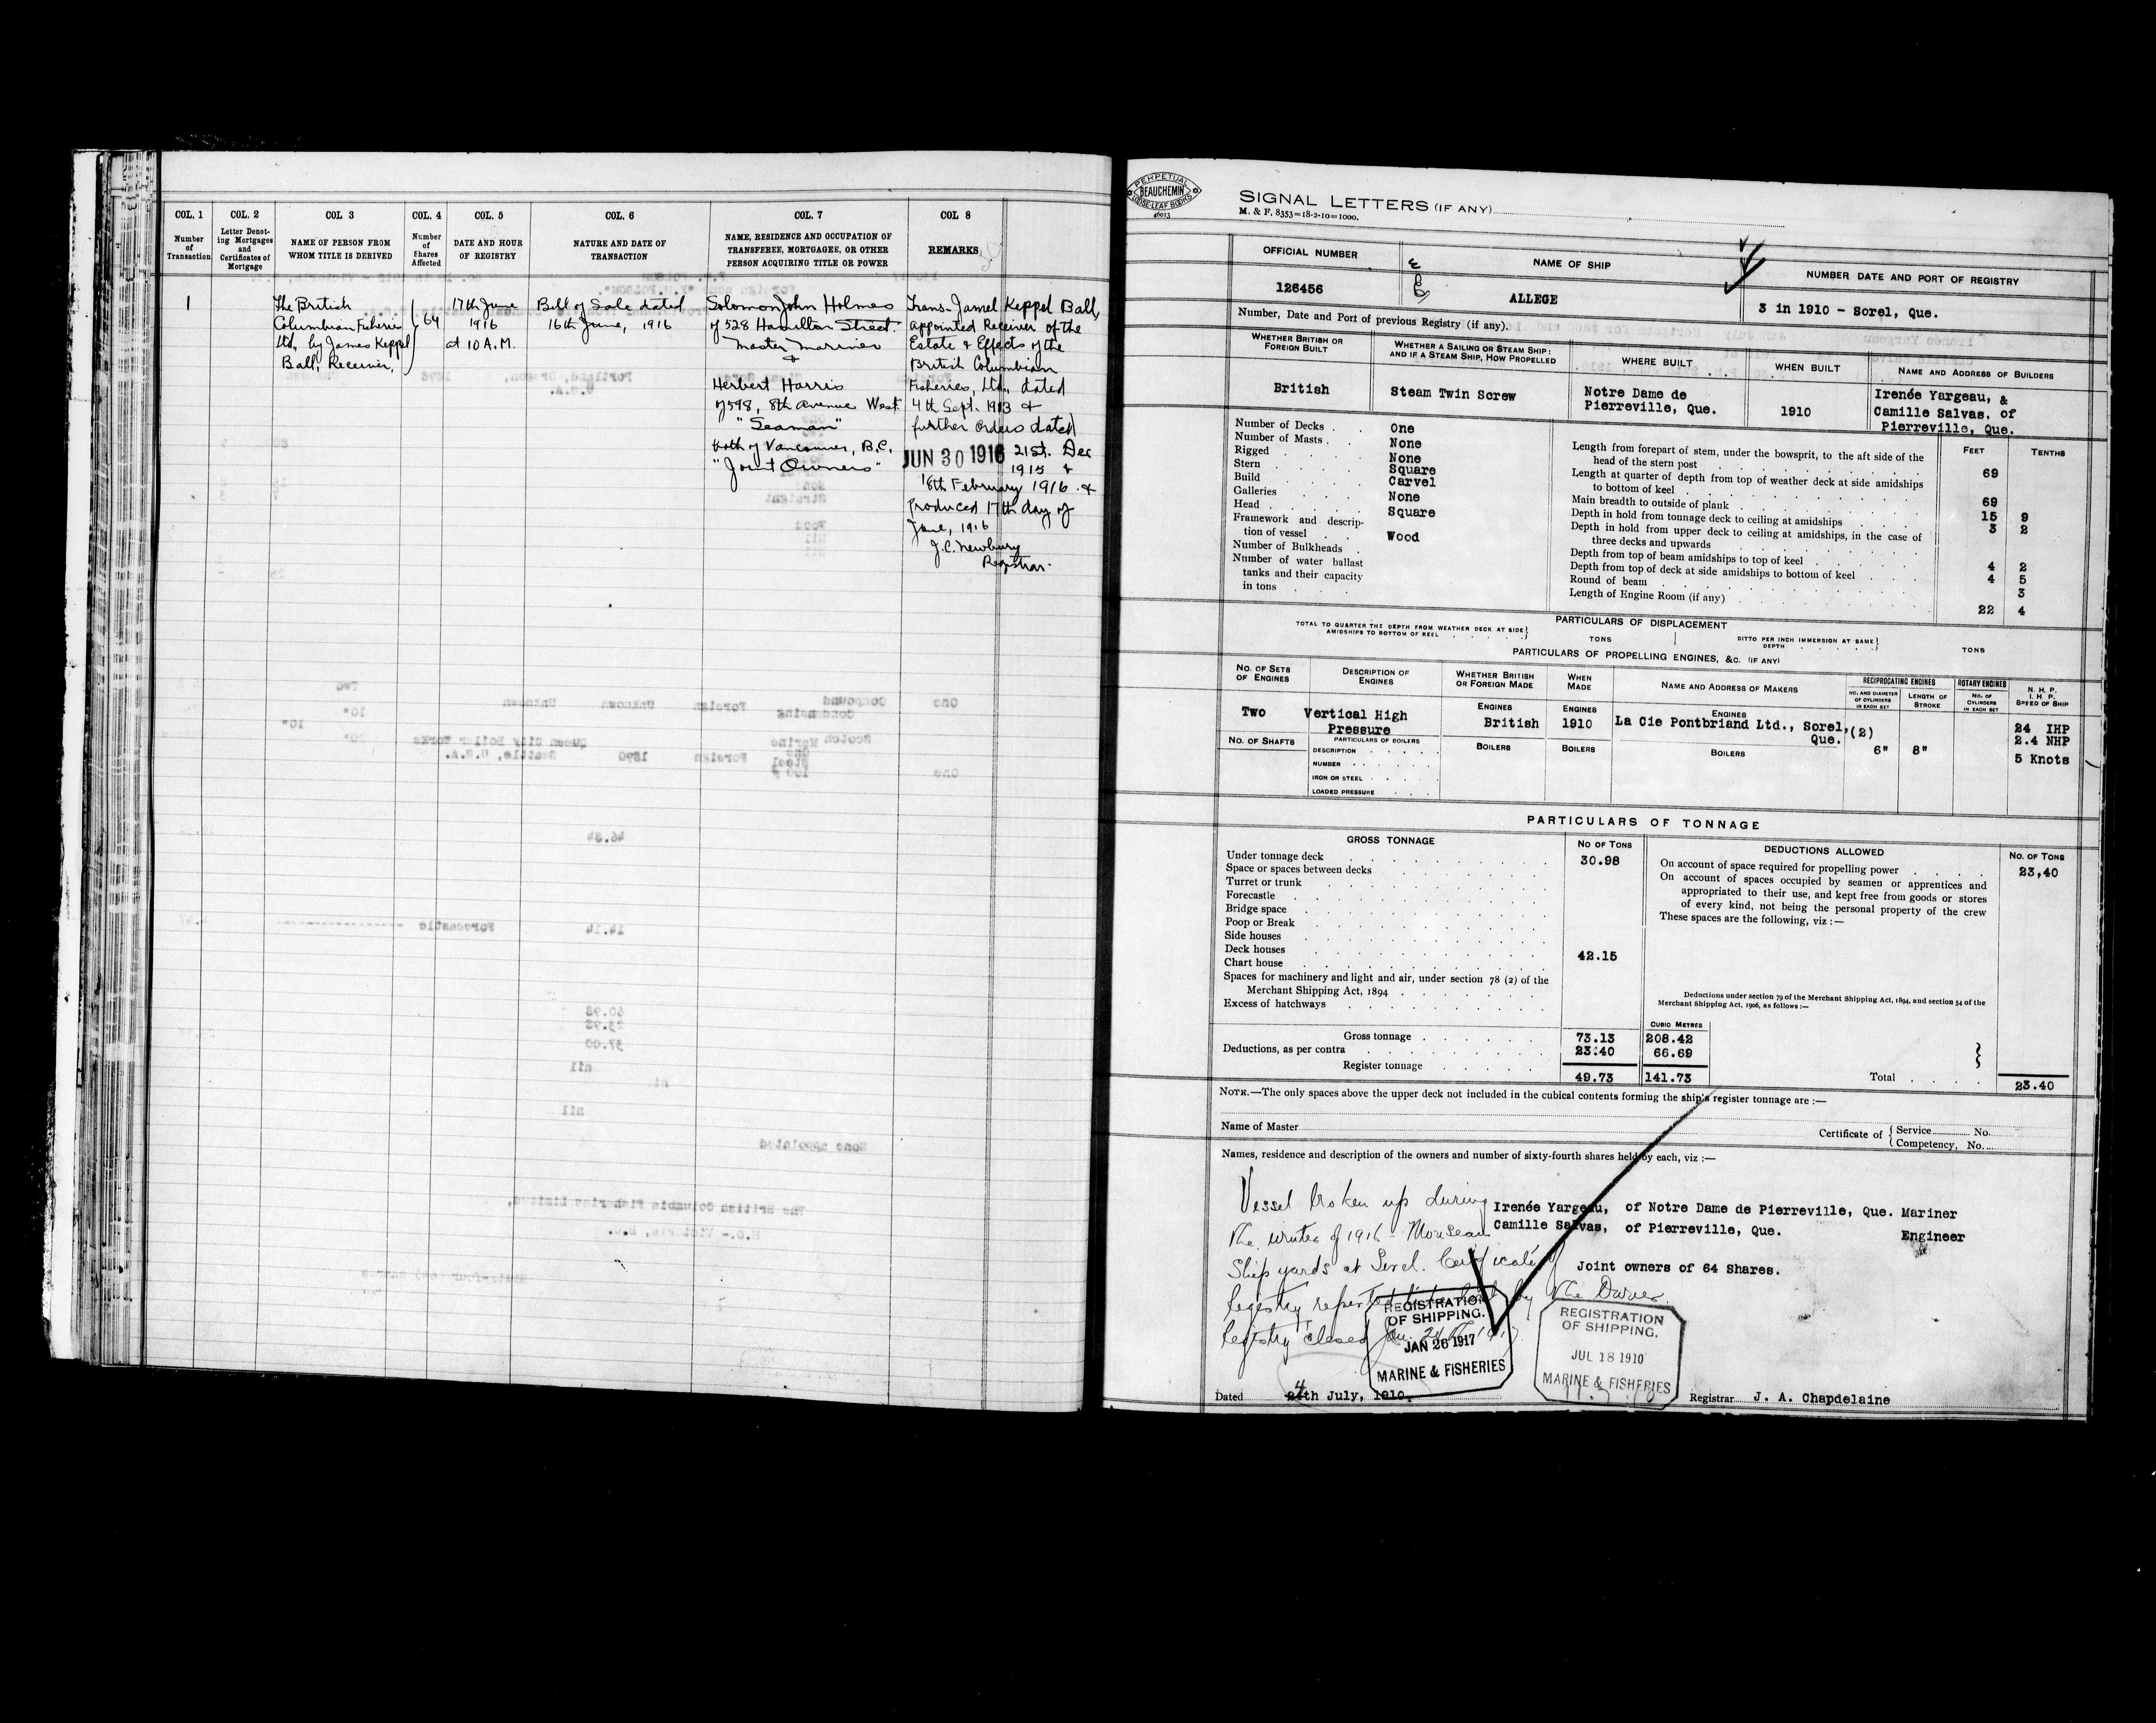 COL. 1
Number
of
Transaction
COL. 2
Letter Denot-
ing Mortgages
and
Certificates of
Mortgage
COL. 3
NAME OF PERSON FROM
WHOM TITLE IS DERIVED
COL. 4
Number
of
Shares
Affected
COL. 5
DATE AND HOUR
OF REGISTRY
COL. 6
NATURE AND DATE OF
TRANSACTION
COL. 7
NAME, RESIDENCE AND OCCUPATION OF
TRANSFEREE, MORTGAGEE, OR OTHER
PERSON ACQUIRING TITLE OR POWER
COL 8
REMARKS
1
The British
Columbian Fisheries
Ltd, by James Keppel
Ball, Receiver,
64
17th June
1916
at 10 A.M.
Bill of Sale dated
16th June, 1916
Solomon John Holmes
of 528 Hamilton Street.
"Master Mariner
&
Herbert Harris
of 598, 8th Avenue West.
"Seaman"
both of Vancouver, B.C.
"Joint Owners"
Trans. James Keppel Ball,
appointed Receiver of the
Estate & Effects of the
British Columbian
Fisheries, Ltd., dated
4th Sept. 1913 &
further orders dated
JUN 30 1916 21st. Dec
1915 &
18th February 1916 &
produced 17th day of
June, 1916
J.C. Newbury
Registrar.
PERPETUAL
BEAUCHEMIN
LOOSE-LEAF BOOKS
46013
SIGNAL LETTERS (IF ANY)
M. & F. 8353=18-2-10=1000.
OFFICIAL NUMBER
126456
NAME OF SHIP
ALLEGE
NUMBER DATE AND PORT OF REGISTRY
3 in 1910 - Sorel, Que.
Number, Date and Port of previous Registry (if any).
WHETHER BRITISH OR
FOREIGN BUILT
British
WHETHER A SAILING OR STEAM SHIP;
AND IF A STEAM SHIP, HOW PROPELLED
Steam Twin Screw
WHERE BUILT
Notre Dame de
Pierreville, Que.
WHEN BUILT
1910
NAME AND ADDRESS OF BUILDERS
Irenée Yargeau, &
Camille Salvas, of
Pierreville, Que.
Number of Decks . . One
Number of Masts . . None
Rigged . . . None
Stern . . . Square
Build . . . Carvel
Galleries . . . None
Head . . . Square
Framework and descrip-
tion of vessel . . Wood
Number of Bulkheads .
Number of water ballast
tanks and their capacity
in tons . . .
FEET TENTHS
Length from forepart of stem, under the bowsprit, to the aft side of the
head of the stern post 69
Length at quarter of depth from top of weather deck at side amidships
to bottom of keel 69
Main breadth to outside of plank 15 9
Depth in hold from tonnage deck to ceiling at amidships 3 2
Depth in hold from upper deck to ceiling at amidships, in the case of
three decks and upwards
Depth from top of beam amidships to top of keel 4 2
Depth from top of deck at side amidships to bottom of keel 4 5
Round of beam 3
Length of Engine Room (if any) 22 4
PARTICULARS OF DISPLACEMENT
TOTAL TO QUARTER THE DEPTH FROM WEATHER DECK AT SIDE
AMIDSHIPS TO BOTTOM OF KEEL
TONS
DITTO PER INCH IMMERSION AT SAME
DEPTH
TONS
PARTICULARS OF PROPELLING ENGINES, &C. (IF ANY)
NO. OF SETS
OF ENGINES
Two
NO. OF SHAFTS
DESCRIPTION OF
ENGINES
Vertical High
Pressure
PARTICULARS OF BOILERS
DESCRIPTION
NUMBER
IRON OR STEEL
LOADED PRESSURE
WHETHER BRITISH
OR FOREIGN MADE
ENGINES
British
BOILERS
WHEN
MADE
ENGINES
1910
BOILERS
NAME AND ADDRESS OF MAKERS
ENGINES
La Cie Pontbriand Ltd., Sorel,
Que.
BOILERS
RECIPROCATING ENGINES
NO. AND DIAMETER
OF CYLINDERS
IN EACH SET
(2)
6"
LENGTH OF
STROKE
8"
ROTARY ENGINES
NO. OF
CYLINDERS
IN EACH SET
N. H. P.
I. H. P.
SPEED OF SHIP
24 IHP
2.4 NHP
5 Knots
PARTICULARS OF TONNAGE
GROSS TONNAGE
NO OF TONS
Under tonnage deck 30.98
Space or spaces between decks
Turret or trunk
Forecastle
Bridge space
Poop or Break
Side houses
Deck houses 42.15
Chart house
Spaces for machinery and light and air, under section 78 (2) of the
Merchant Shipping Act, 1894
Excess of hatchways
CUBIC METRES
Gross tonnage 73.13 208.42
Deductions, as per contra 23.40 66.69
Register tonnage 49.73 141.73
DEDUCTIONS ALLOWED
NO. OF TONS
On account of space required for propelling power 23,40
On account of spaces occupied by seamen or apprentices and
appropriated to their use, and kept free from goods or stores
of every kind, not being the personal property of the crew
These spaces are the following, viz :—
Deductions under section 79 of the Merchant Shipping Act, 1894, and section 54 of the
Merchant Shipping Act, 1906, as follows:—
Total 23.40
NOTE.—The only spaces above the upper deck not included in the cubical contents forming the ship's register tonnage are :—
Name of Master
Certificate of { Service No.
Competency, No.
Names, residence and description of the owners and number of sixty-fourth shares held by each, viz :—
Irenée Yargeau, of Notre Dame de Pierreville, Que. Mariner
Camille Salvas, of Pierreville, Que. Engineer
Joint owners of 64 Shares.
Vessel broken up during
the winter of 1916 -
Ship yards at Sorel. Certificate of
Registry reported by the Owner.
Registry closed Jan. 1917.
REGISTRATION
OF SHIPPING.
JAN 26 1917
MARINE & FISHERIES
REGISTRATION
OF SHIPPING.
JUL 18 1910
MARINE & FISHERIES
Dated 4th July, 1910.
Registrar J. A. Chapdelaine